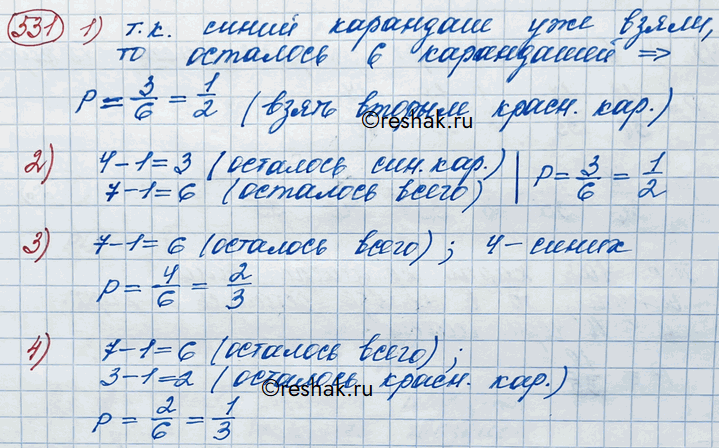 531 1) т.к. синий карандаш уже взяли,
то осталось 6 карандашей ⇒
P = 3/6 = 1/2 (взять вторым красн. кар.)
©reshak.ru
2) 4-1=3 (осталось син. кар.) | P = 3/6 = 1/2
7-1=6 (осталось всего)
3) 7-1=6 (осталось всего); 4-синих
P = 4/6 = 2/3
4) 7-1=6 (осталось всего);
3-1=2 (осталось красн. кар.)
©reshak.ru
P = 2/6 = 1/3